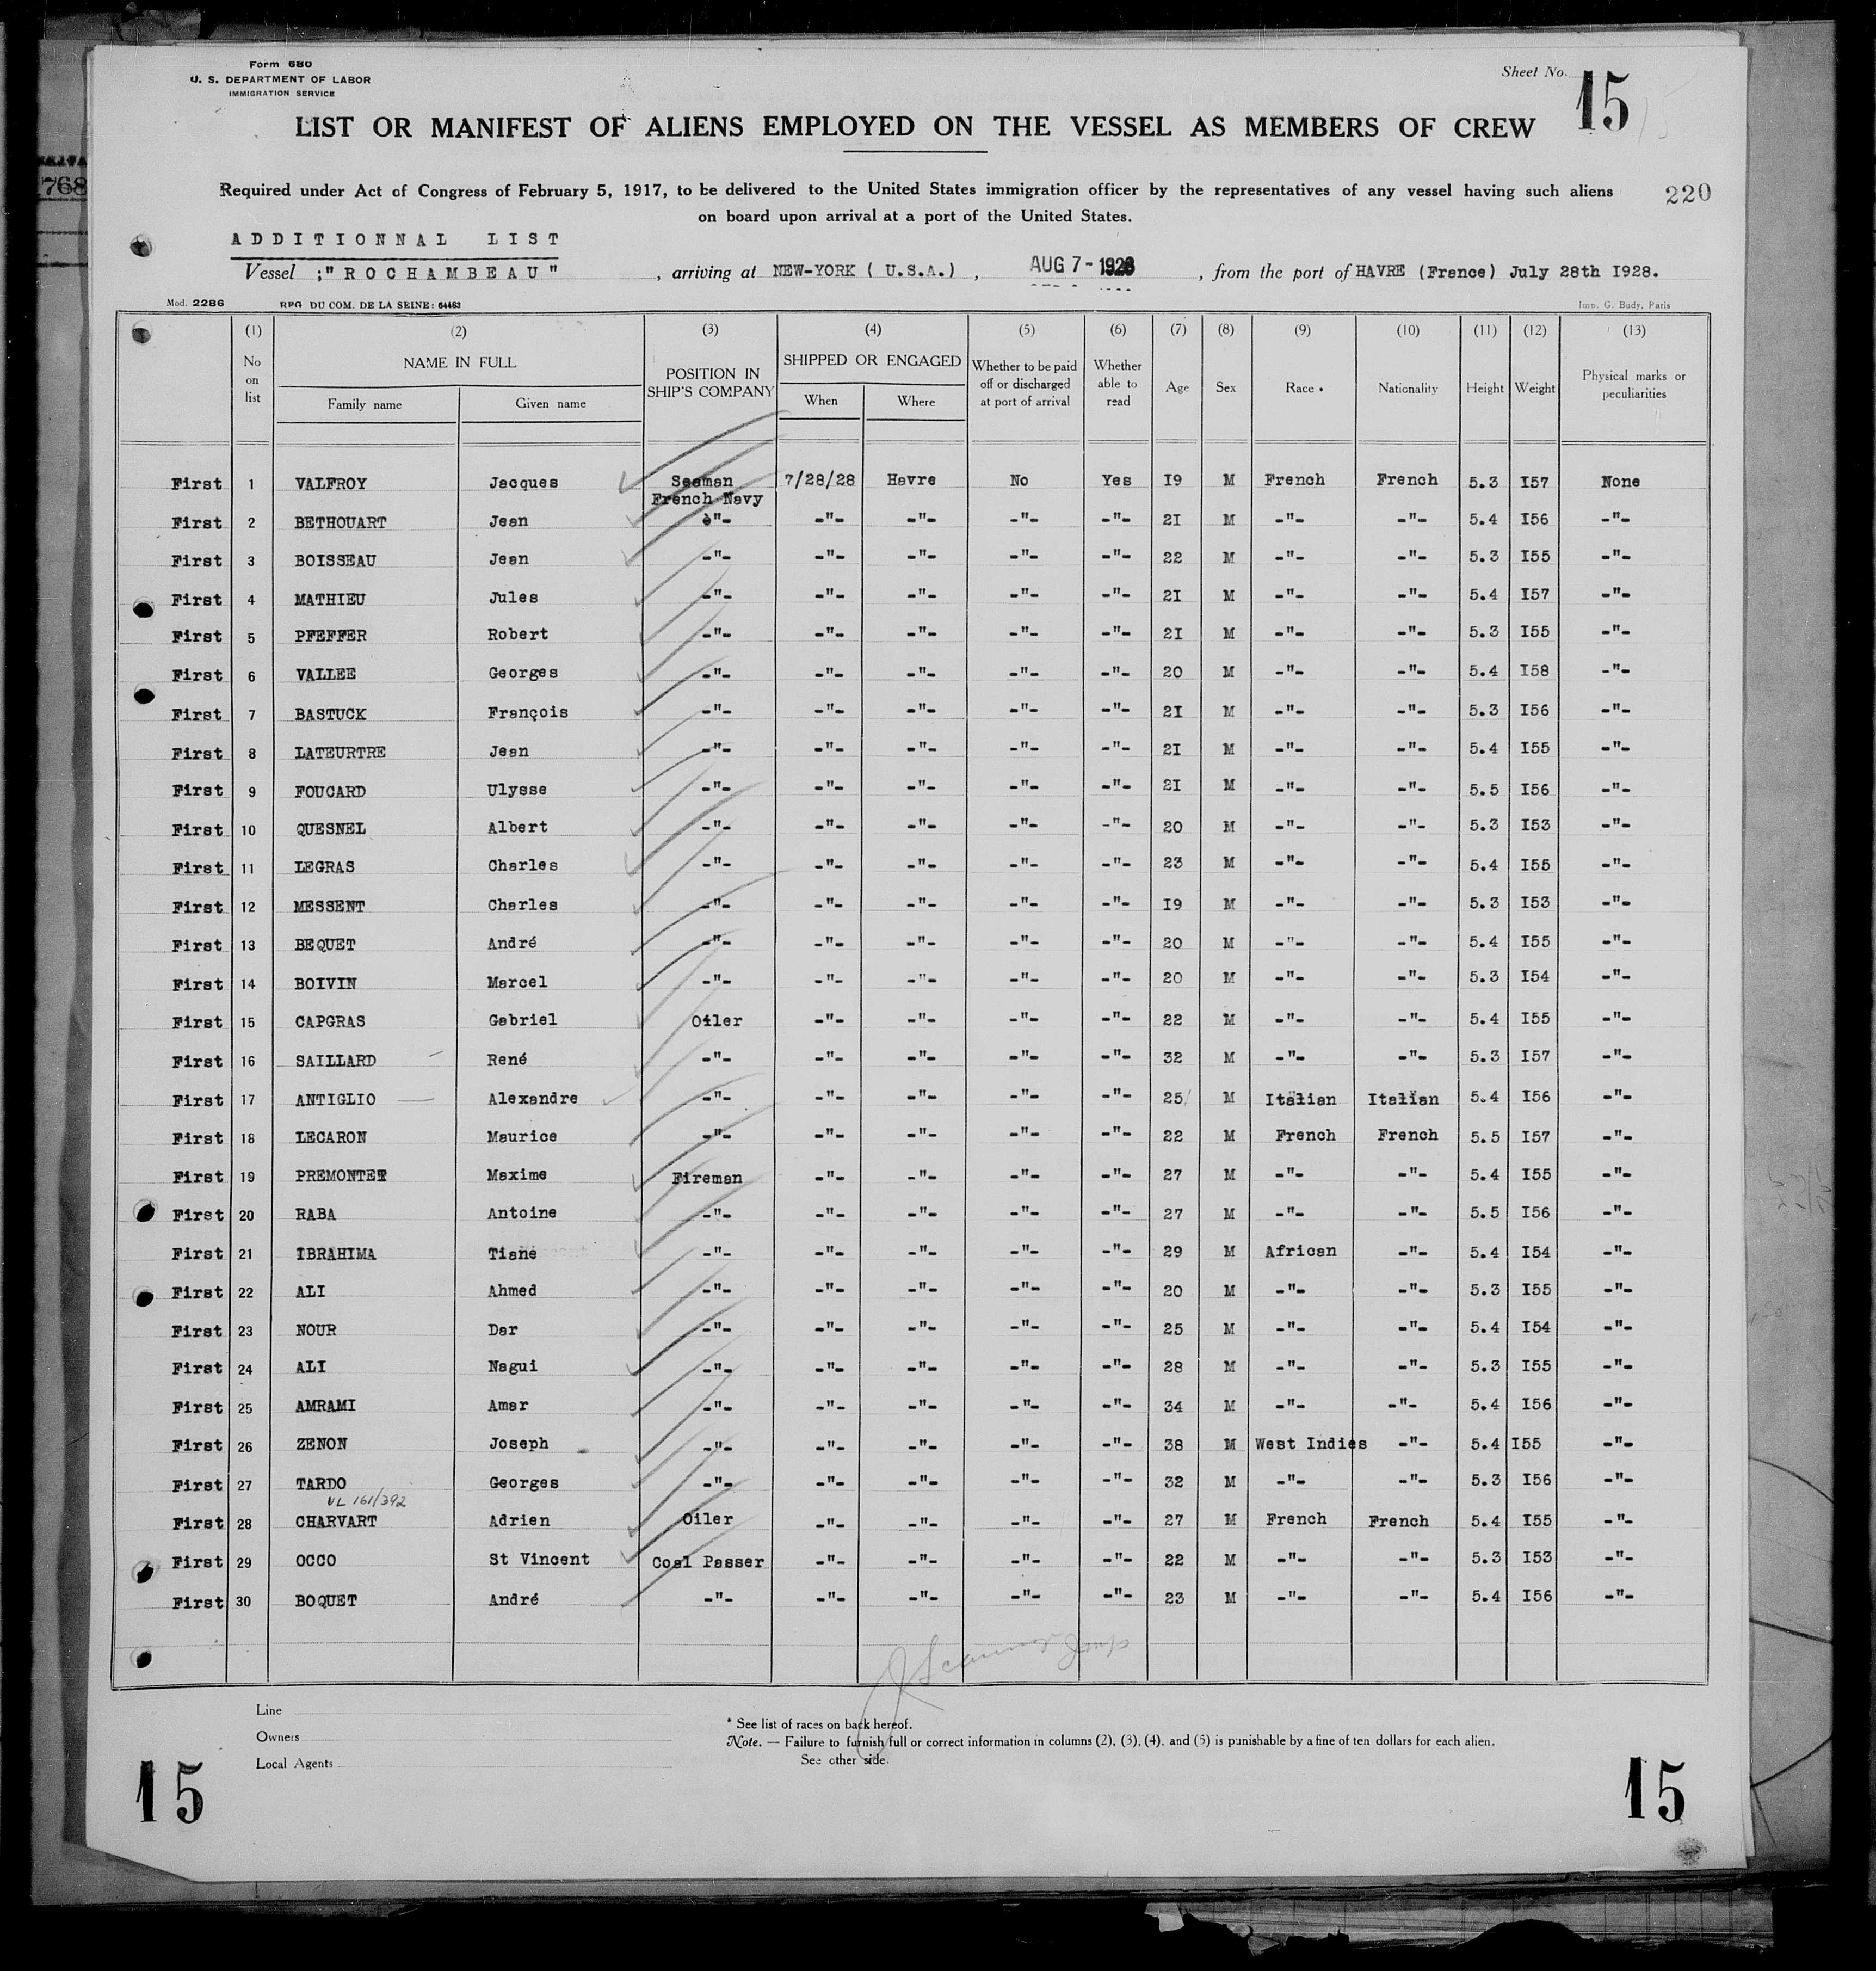 Form 680
U. S. DEPARTMENT OF LABOR
IMMIGRATION SERVICE
Sheet No. 15
LIST OR MANIFEST OF ALIENS EMPLOYED ON THE VESSEL AS MEMBERS OF CREW
Required under Act of Congress of February 5, 1917, to be delivered to the United States immigration officer by the representatives of any vessel having such aliens
on board upon arrival at a port of the United States.
220
ADDITIONNAL LIST
Vessel ;"ROCHAMBEAU" , arriving at NEW-YORK ( U.S.A.) , AUG 7 - 1928 , from the port of HAVRE (France) July 28th I928.
Mod. 2286 RPG DU COM. DE LA SEINE: 64463 Imp. G. Budy, Paris
(1) (2) (3) (4) (5) (6) (7) (8) (9) (10) (11) (12) (13)
No on list NAME IN FULL Family name Given name POSITION IN SHIP'S COMPANY SHIPPED OR ENGAGED When Where Whether to be paid off or discharged at port of arrival Whether able to read Age Sex Race * Nationality Height Weight Physical marks or peculiarities
First 1 VALFROY Jacques Seaman French Navy 7/28/28 Havre No Yes I9 M French French 5.3 I57 None
First 2 BETHOUART Jean -"- -"- -"- -"- -"- 2I M -"- -"- 5.4 I56 -"-
First 3 BOISSEAU Jean -"- -"- -"- -"- -"- 22 M -"- -"- 5.3 I55 -"-
First 4 MATHIEU Jules -"- -"- -"- -"- -"- 2I M -"- -"- 5.4 I57 -"-
First 5 PFEFFER Robert -"- -"- -"- -"- -"- 2I M -"- -"- 5.3 I55 -"-
First 6 VALLEE Georges -"- -"- -"- -"- -"- 20 M -"- -"- 5.4 I58 -"-
First 7 BASTUCK François -"- -"- -"- -"- -"- 2I M -"- -"- 5.3 I56 -"-
First 8 LATEURTRE Jean -"- -"- -"- -"- -"- 2I M -"- -"- 5.4 I55 -"-
First 9 FOUCARD Ulysse -"- -"- -"- -"- -"- 2I M -"- -"- 5.5 I56 -"-
First 10 QUESNEL Albert -"- -"- -"- -"- -"- 20 M -"- -"- 5.3 I53 -"-
First 11 LEGRAS Charles -"- -"- -"- -"- -"- 23 M -"- -"- 5.4 I55 -"-
First 12 MESSENT Charles -"- -"- -"- -"- -"- I9 M -"- -"- 5.3 I53 -"-
First 13 BEQUET André -"- -"- -"- -"- -"- 20 M -"- -"- 5.4 I55 -"-
First 14 BOIVIN Marcel -"- -"- -"- -"- -"- 20 M -"- -"- 5.3 I54 -"-
First 15 CAPGRAS Gabriel Oiler -"- -"- -"- -"- 22 M -"- -"- 5.4 I55 -"-
First 16 SAILLARD René -"- -"- -"- -"- -"- 32 M -"- -"- 5.3 I57 -"-
First 17 ANTIGLIO Alexandre -"- -"- -"- -"- -"- 25 M Italian Italian 5.4 I56 -"-
First 18 LECARON Maurice -"- -"- -"- -"- -"- 22 M French French 5.5 I57 -"-
First 19 PREMONTET Maxime Fireman -"- -"- -"- -"- 27 M -"- -"- 5.4 I55 -"-
First 20 RABA Antoine -"- -"- -"- -"- -"- 27 M -"- -"- 5.5 I56 -"-
First 21 IBRAHIMA Tiané -"- -"- -"- -"- -"- 29 M African -"- 5.4 I54 -"-
First 22 ALI Ahmed -"- -"- -"- -"- -"- 20 M -"- -"- 5.3 I55 -"-
First 23 NOUR Dar -"- -"- -"- -"- -"- 25 M -"- -"- 5.4 I54 -"-
First 24 ALI Nagui -"- -"- -"- -"- -"- 28 M -"- -"- 5.3 I55 -"-
First 25 AMRAMI Amar -"- -"- -"- -"- -"- 34 M -"- -"- 5.4 I56 -"-
First 26 ZENON Joseph -"- -"- -"- -"- -"- 38 M West Indies -"- 5.4 I55 -"-
First 27 TARDO Georges -"- -"- -"- -"- -"- 32 M -"- -"- 5.3 I56 -"-
VL 161/392
First 28 CHARVART Adrien Oiler -"- -"- -"- -"- 27 M French French 5.4 I55 -"-
First 29 OCCO St Vincent Coal Passer -"- -"- -"- -"- 22 M -"- -"- 5.3 I53 -"-
First 30 BOQUET André -"- -"- -"- -"- -"- 23 M -"- -"- 5.4 I56 -"-
Line
Owners
Local Agents
* See list of races on back hereof.
Note. — Failure to furnish full or correct information in columns (2), (3), (4), and (5) is punishable by a fine of ten dollars for each alien.
See other side.
15
15